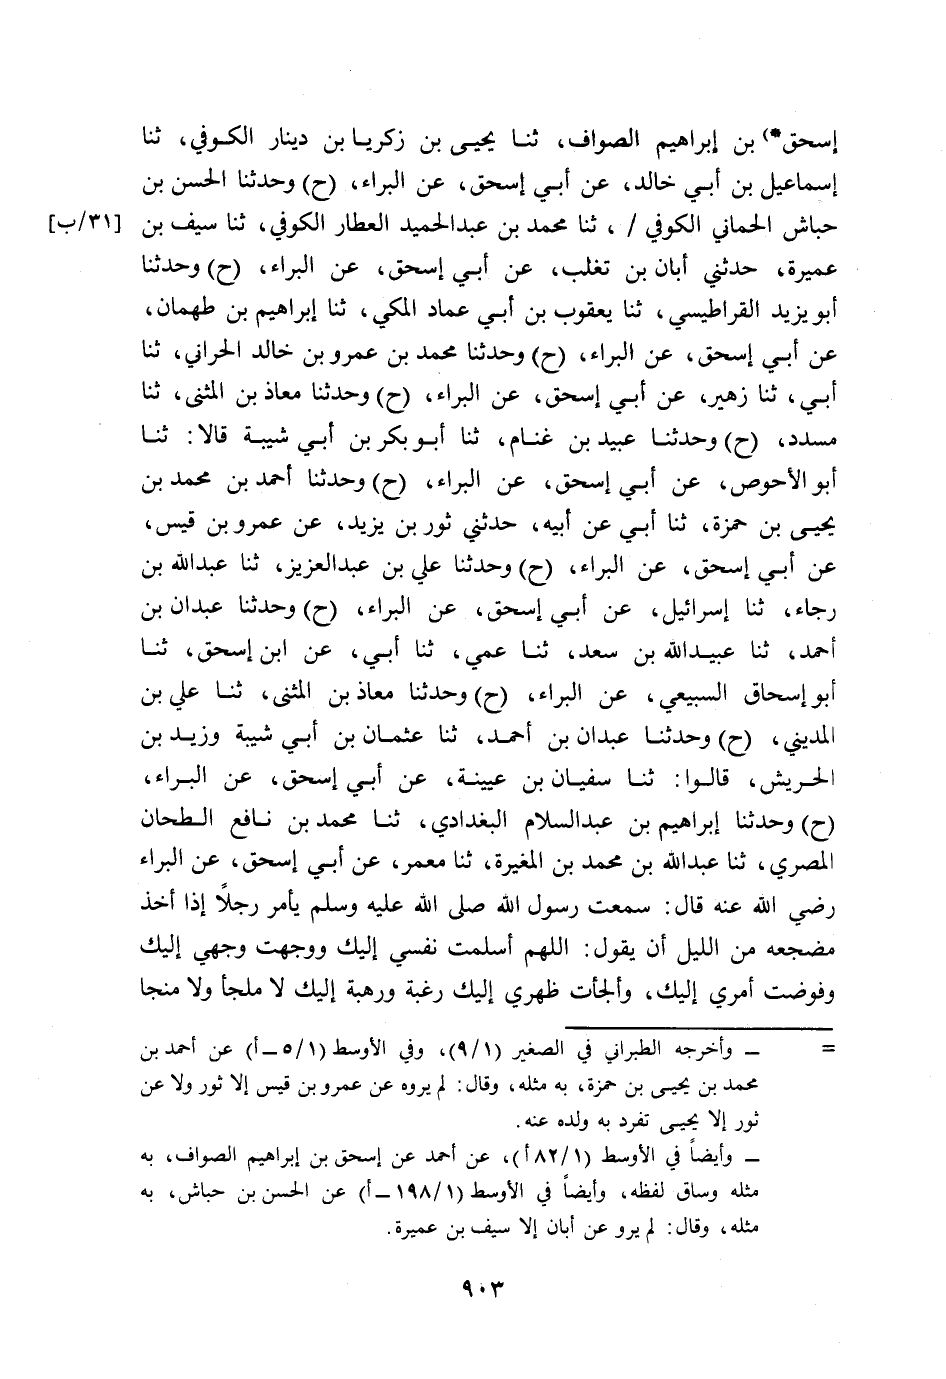 إسحق*) بن إبراهيم الصواف، ثنا يحيى بن زكريا بن دينار الكوفي، ثنا
إسماعيل بن أبي خالد، عن أبي إسحق، عن البراء، (ح) وحدثنا الحسن بن
حباش الحماني الكوفي /، ثنا محمد بن عبدالحميد العطار الكوفي، ثنا سيف بن [٣١/ب]
عميرة، حدثني أبان بن تغلب، عن أبي إسحق، عن البراء، (ح) وحدثنا
أبو يزيد القراطيسي، ثنا يعقوب بن أبي عماد المكي، ثنا إبراهيم بن طهمان،
عن أبي إسحق، عن البراء، (ح) وحدثنا محمد بن عمرو بن خالد الحراني، ثنا
أبي، ثنا زهير، عن أبي إسحق، عن البراء، (ح) وحدثنا معاذ بن المثنى، ثنا
مسدد، (ح) وحدثنا عبيد بن غنام، ثنا أبو بكر بن أبي شيبة قالا: ثنا
أبو الأحوص، عن أبي إسحق، عن البراء، (ح) وحدثنا أحمد بن محمد بن
يحيى بن حمزة، ثنا أبي عن أبيه، حدثني ثور بن يزيد، عن عمرو بن قيس،
عن أبي إسحق، عن البراء، (ح) وحدثنا علي بن عبدالعزيز، ثنا عبدالله بن
رجاء، ثنا إسرائيل، عن أبي إسحق، عن البراء، (ح) وحدثنا عبدان بن
أحمد، ثنا عبيدالله بن سعد، ثنا عمي، ثنا أبي، عن ابن إسحق، ثنا
أبو إسحاق السبيعي، عن البراء، (ح) وحدثنا معاذ بن المثنى، ثنا علي بن
المديني، (ح) وحدثنا عبدان بن أحمد، ثنا عثمان بن أبي شيبة وزيد بن
الحريش، قالوا: ثنا سفيان بن عيينة، عن أبي إسحق، عن البراء،
(ح) وحدثنا إبراهيم بن عبدالسلام البغدادي، ثنا محمد بن نافع الطحان
المصري، ثنا عبدالله بن محمد بن المغيرة، ثنا معمر، عن أبي إسحق، عن البراء
رضي الله عنه قال: سمعت رسول الله صلى الله عليه وسلم يأمر رجلاً إذا أخذ
مضجعه من الليل أن يقول: اللهم أسلمت نفسي إليك ووجهت وجهي إليك
وفوضت أمري إليك، وألجأت ظهري إليك رغبة ورهبة إليك لا ملجأ ولا منجا
= ــ وأخرجه الطبراني في الصغير (٩/١)، وفي الأوسط (٥/١ــأ) عن أحمد بن
محمد بن يحيى بن حمزة، به مثله، وقال: لم يروه عن عمرو بن قيس إلا ثور ولا عن
ثور إلا يحيى تفرد به ولده عنه.
ــ وأيضاً في الأوسط (٨٢/١أ)، عن أحمد عن إسحق بن إبراهيم الصواف، به
مثله وساق لفظه، وأيضاً في الأوسط (١٩٨/١ــأ) عن الحسن بن حباش، به
مثله، وقال: لم يرو عن أبان إلا سيف بن عميرة.
٩٠٣